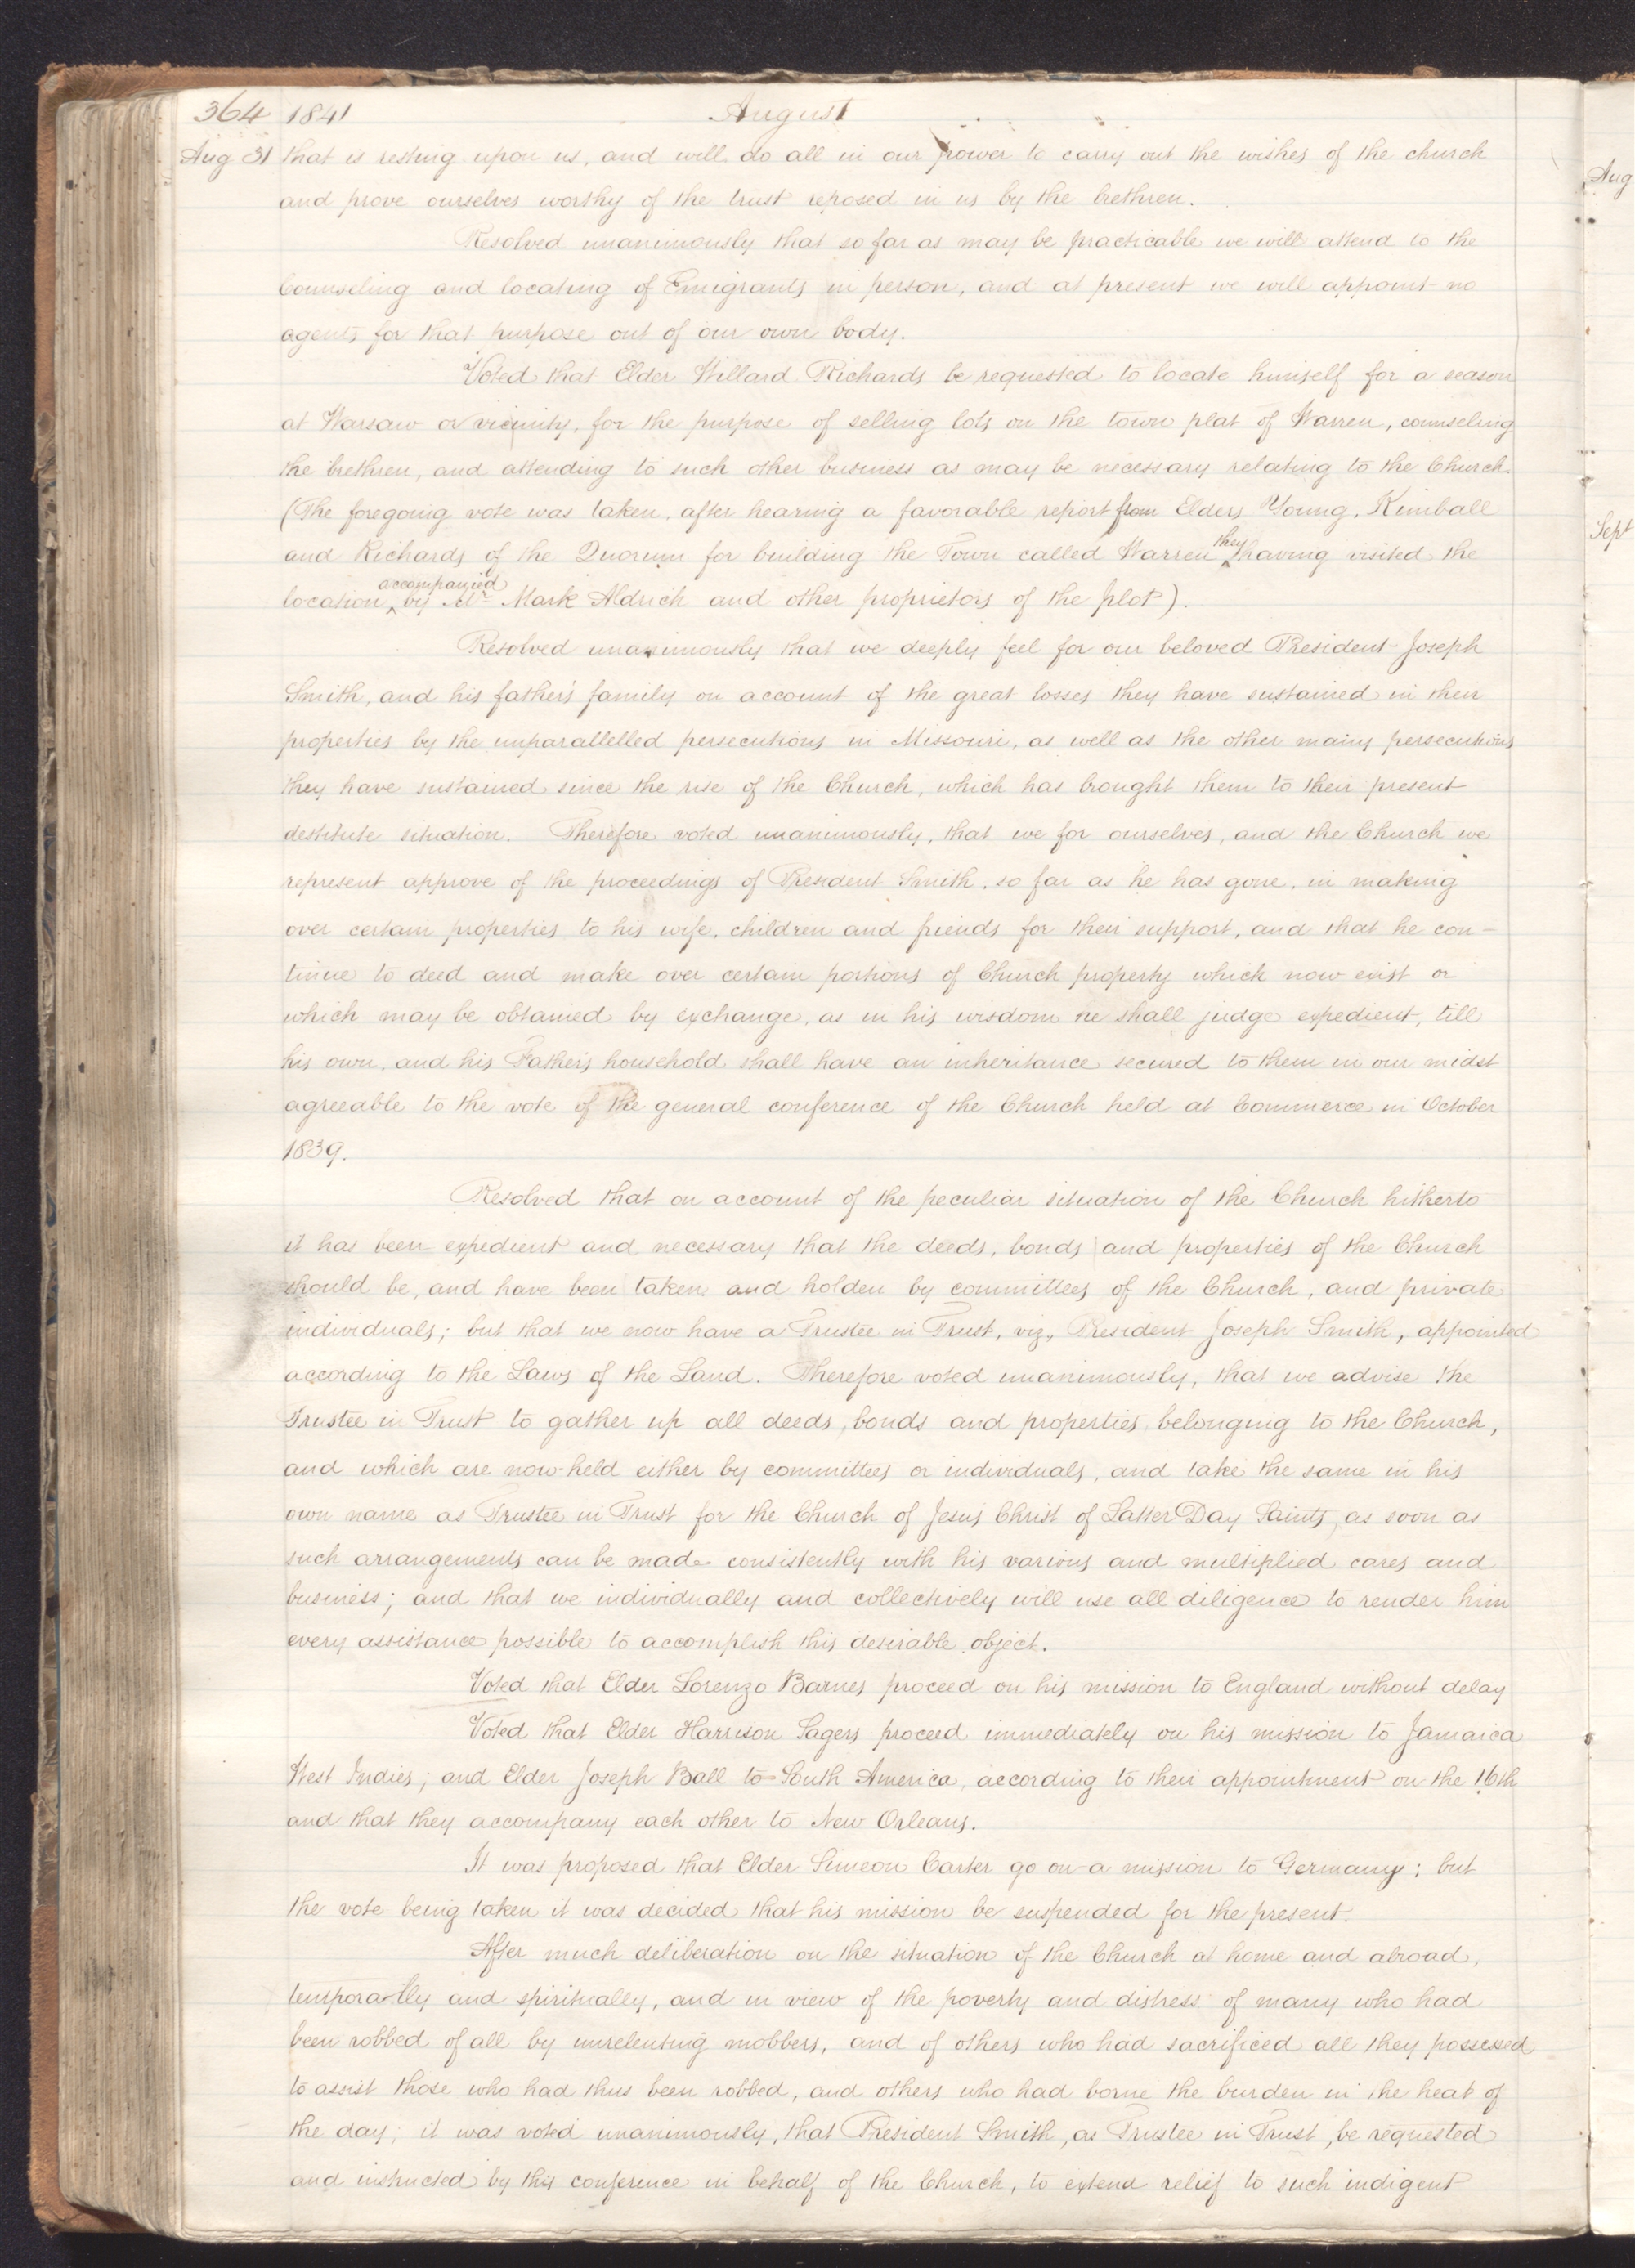 364 1841 August
Aug 31 that is resting upon us, and will do all in our power to carry out the wishes of the church
and prove ourselves worthy of the trust reposed in us by the brethren.
Resolved unanimously that so far as may be practicable we will attend to the
Counseling and locating of Emigrants in person, and at present we will appoint no
agents for that purpose out of our own body.
Voted that Elder Willard Richards be requested to locate himself for a season
at Warsaw or vicinity, for the purpose of selling lots on the town plat of Warren, counseling
the brethren, and attending to such other business as may be necessary relating to the Church.
(The foregoing vote was taken, after hearing a favorable report from Elders Young, Kimball
and Richards of the Quorum for building the Town called Warren ^they having visited the
location, ^accompanied by Mr Mark Aldrich and other proprietors of the plot).
Resolved unanimously that we deeply feel for our beloved President Joseph
Smith, and his father's family on account of the great losses they have sustained in their
properties by the unparallelled persecutions in Missouri, as well as the other many persecutions
they have sustained since the rise of the Church, which has brought them to their present
destitute situation. Therefore voted unanimously, that we for ourselves, and the Church we
represent approve of the proceedings of President Smith, so far as he has gone, in making
over certain properties to his wife, children and friends for their support, and that he con-
tinue to deed and make over certain portions of Church property which now exist or
which may be obtained by exchange, as in his wisdom he shall judge expedient, till
his own, and his Father's household shall have an inheritance secured to them in our midst
agreeable to the vote of the general conference of the Church held at Commerce in October
1839.
Resolved that on account of the peculiar situation of the Church hitherto
it has been expedient and necessary that the deeds, bonds and properties of the Church
should be, and have been taken and holden by committees of the Church, and private
individuals; but that we now have a Trustee in Trust, viz., President Joseph Smith, appointed
according to the Laws of the Land. Therefore voted unanimously, that we advise the
Trustee in Trust to gather up all deeds, bonds and properties belonging to the Church,
and which are now held either by committees or individuals, and take the same in his
own name as Trustee in Trust for the Church of Jesus Christ of Latter Day Saints, as soon as
such arrangements can be made consistently with his various and multiplied cares and
business; and that we individually and collectively will use all diligence to render him
every assistance possible to accomplish this desirable object.
Voted that Elder Lorenzo Barnes proceed on his mission to England without delay
Voted that Elder Harrison Sagers proceed immediately on his mission to Jamaica
West Indies; and Elder Joseph Ball to South America, according to their appointment on the 16th
and that they accompany each other to New Orleans.
It was proposed that Elder Simeon Carter go on a mission to Germany; but
the vote being taken it was decided that his mission be suspended for the present.
After much deliberation on the situation of the Church at home and abroad,
temporally and spiritually, and in view of the poverty and distress of many who had
been robbed of all by unrelenting mobbers, and of others who had sacrificed all they possessed
to assist those who had thus been robbed, and others who had borne the burden in the heat of
the day; it was voted unanimously, that President Smith, as Trustee in Trust, be requested
and instructed by this conference in behalf of the Church, to extend relief to such indigent
Aug
Sept